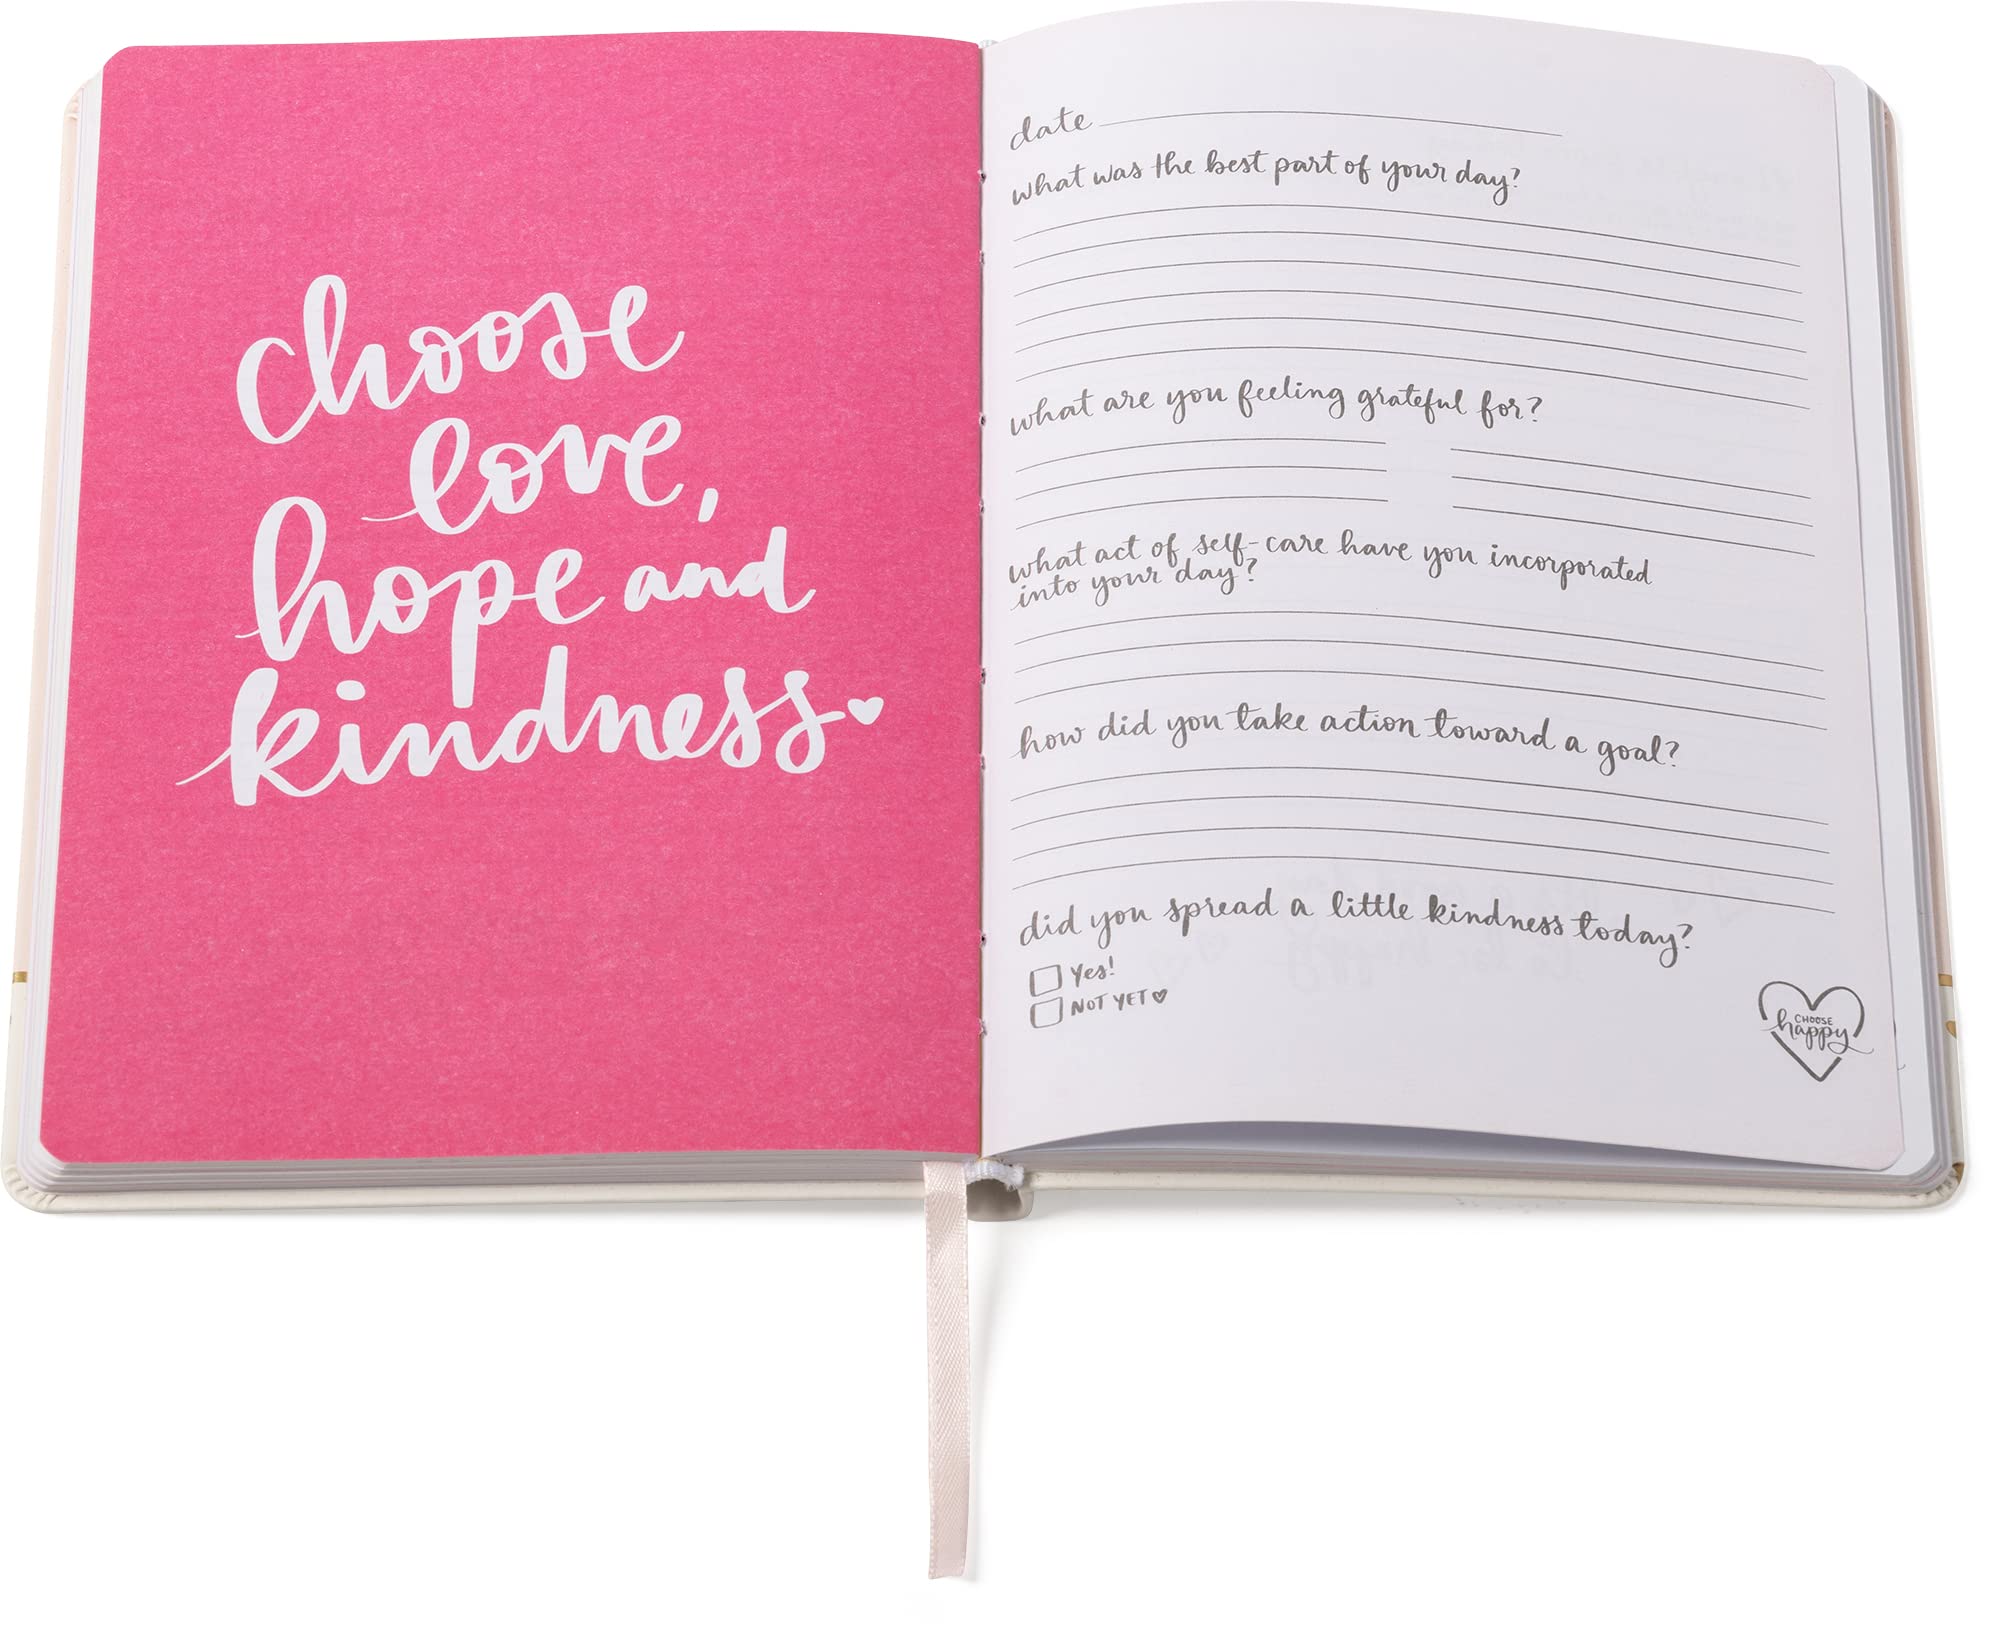 choose
love,
hope and
kindness
date
what was the best part of your day?
what are you feeling grateful for?
what act of self-care have you incorporated
into your day?
how did you take action toward a goal?
did you spread a little kindness today?
Yes!
NOT YET
CHOOSE
happy